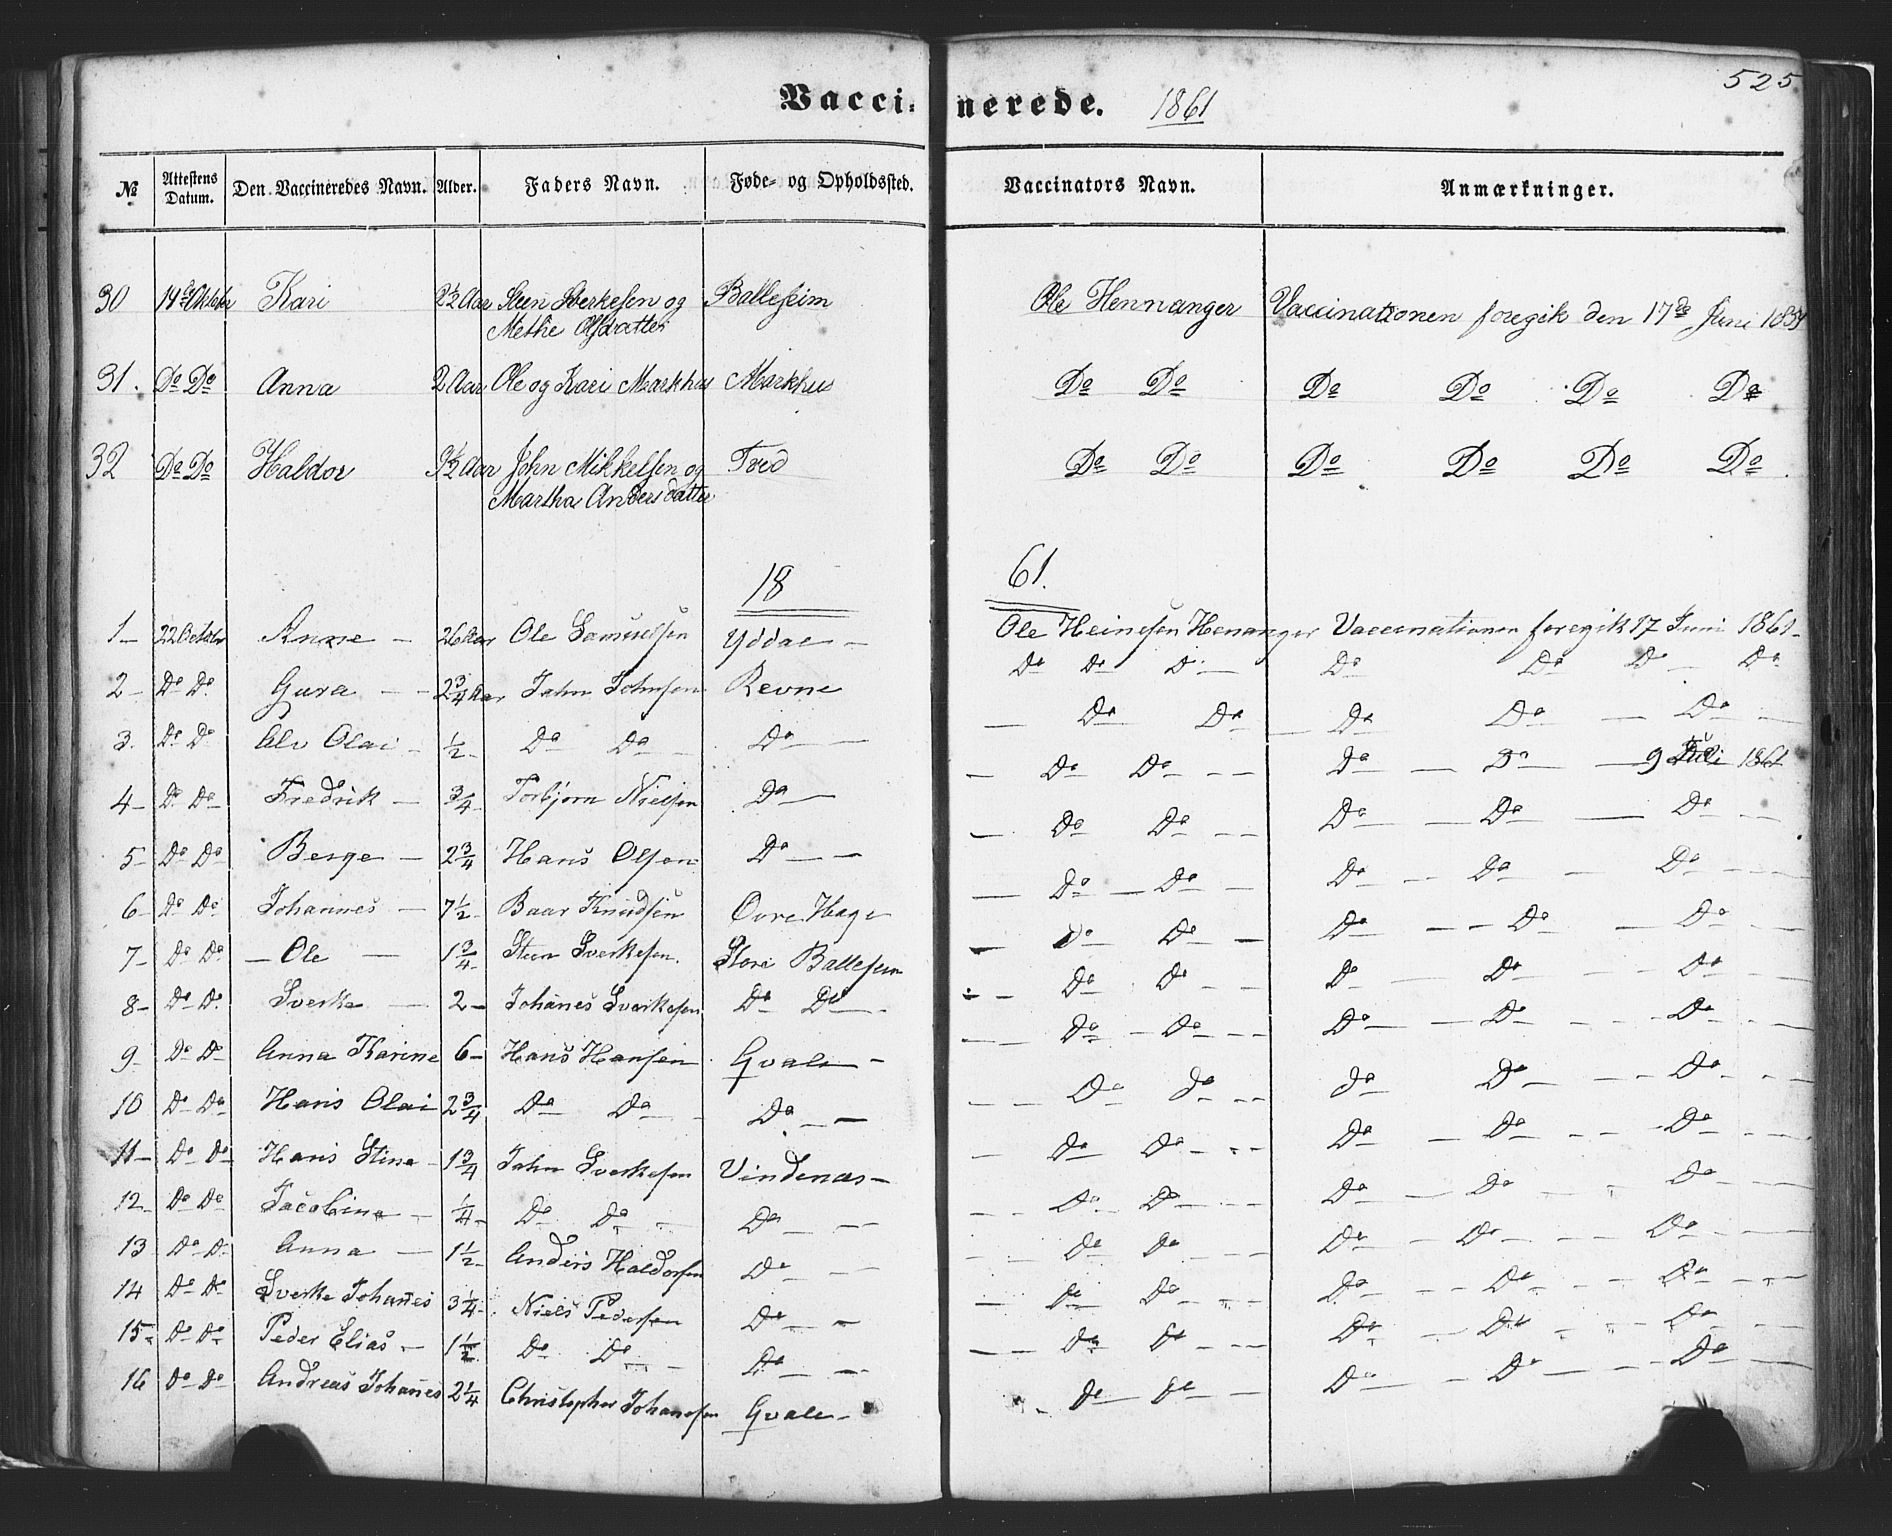 525
Vaccinerede. 1861
№ Attestens Datum. Den Vaccineredes Navn. Alder. Faders Navn. Føde- og Opholdssted. Vaccinators Navn. Anmærkninger.
30 14de Oktober Kari 2½ Aar Steen Sverkesen og Balleseim Ole Hennanger Vaccinationen foregik den 17de Juni
Methe Olsdatter
31. Do Do Anna 2 Aar Ole og Kari Markhus Markhus Do Do Do Do Do Do
32 Do Do Haldor Aar John Mikkelsen og Tved Do Do Do Do Do Do
Martha Andersdatter
1861.
1 22 October Anne 26 Aar Ole Samuelsen Yddal Ole Heinesen Henanger Vaccenationen foregik 17 Juni 1861
2 Do Do Gura 2¾ Aar Jahn Johnsen Revne Do Do Do Do Do Do Do
3. Do Do Alv Olai ½ Do Do Do Do Do Do Do Do
4 Do Do Fredrik ¾ Torbjørn Nielsen Do Do Do Do Do 9 Juli 1861
5 Do Do Berge 2¾ Hans Olsen Do Do Do Do Do Do
6 Do Do Johannes 7½ Baar Knudsen Ovre Hage Do Do Do Do Do
7 Do Do Ole 1¾ Steen Sverkesen. Store Ballesem Do Do Do Do Do
8 Do Do Sverke 2 Johanes Sverkesen Do Do Do Do Do Do Do
9 Do Do Anna Karine 6 Hans Hansen Qvale Do Do Do Do Do
10 Do Do Hans Olai 2¾ Do Do Do Do Do Do Do Do
11 Do Do Hans Stine 1¾ Jahn Sverkesen Vindenas Do Do Do Do Do
12 Do Do Jacobine ¼ Do Do Do Do Do Do Do Do
13 Do Do Anna 1½ Anders Haldorsen Do Do Do Do Do Do
14 Do Do Sverke Johanes 3¼ Niels Pedersen Do Do Do Do Do Do
15 Do Do Peder Elias 1½ Do Do Do Do Do Do Do Do
16 Do Do Andreas Johanes 2¼ Christopher Johanesen Qvale Do Do Do Do Do